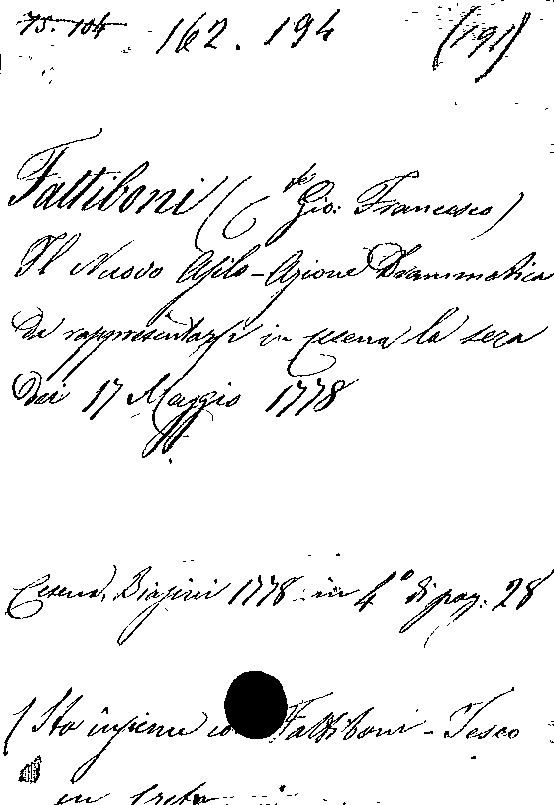 75. 104 162. 194 (191)
Fattiboni (Cte Gio: Francesco)
Il Nuovo Asilo - Azione Drammatica
da rappresentarsi in Cesena la sera
dei 17 Maggio 1778
Cesena, Biasini 1778 in 4° di pag. 28
(Sta insieme co Fattiboni - Tesco
in Creta